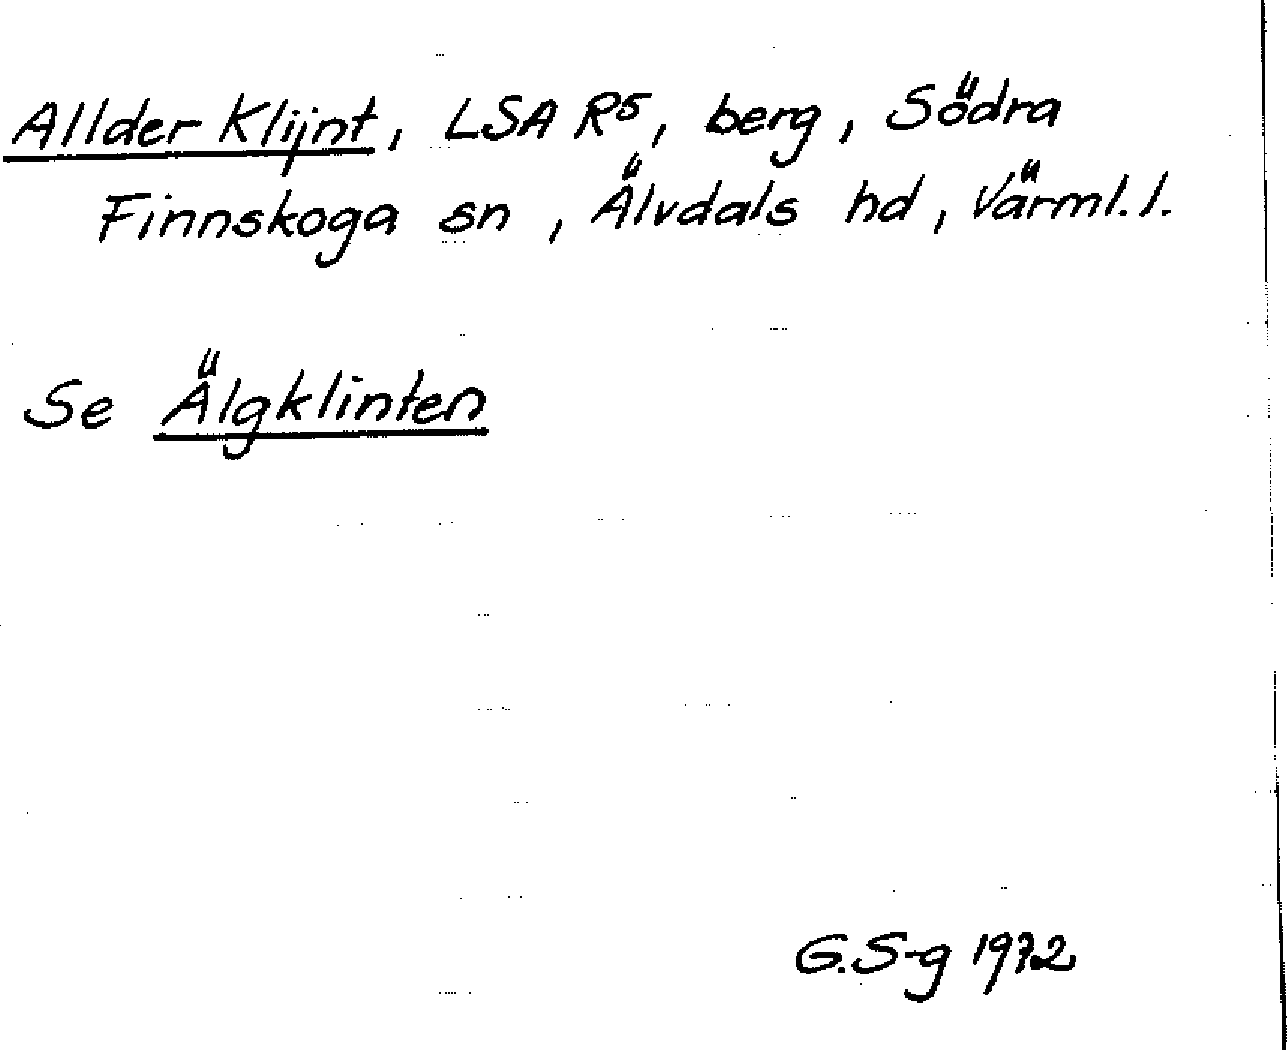 Allder Klijnt, LSA R5, berg, Södra
Finnskoga sn, Älvdals hd, Värml. l.
Se Älgklinten
G.S-g 1972